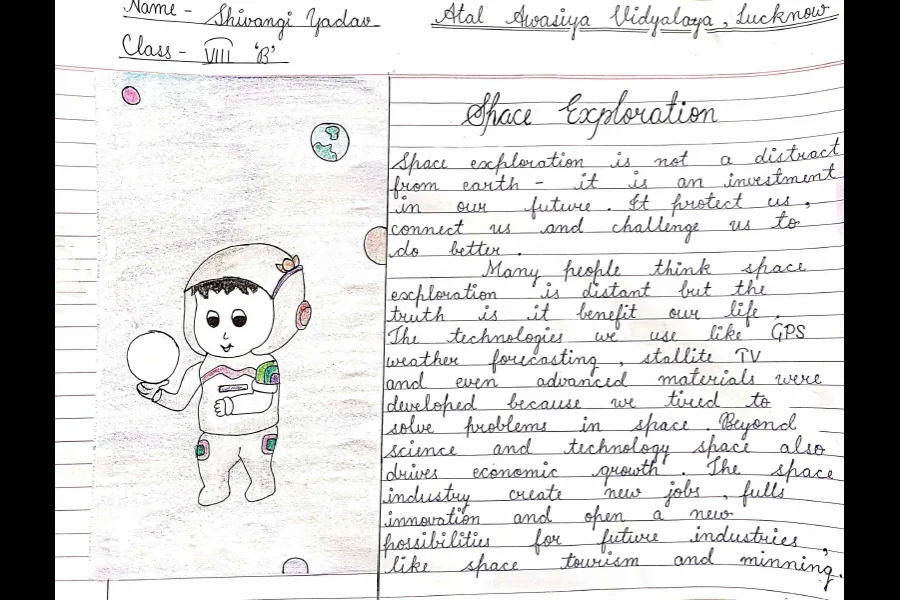 Name - Shivangi Yadav
Atal Awasiya Vidyalaya, Lucknow
Class - VIII 'B'
Space Exploration
Space exploration is not a distract
from earth - it is an investment
in our future. It protect us,
connect us and challenge us to
do better.
Many people think space
exploration is distant but the
truth is it benefit our life.
The technologies we use like GPS
weather forecasting, stallite TV
and even advanced materials were
developed because we tired to
solve problems in space. Beyond
science and technology space also
drives economic growth. The space
industry create new jobs, fulls
innovation and open a new
possibilities for future industries,
like space tourism and minning.